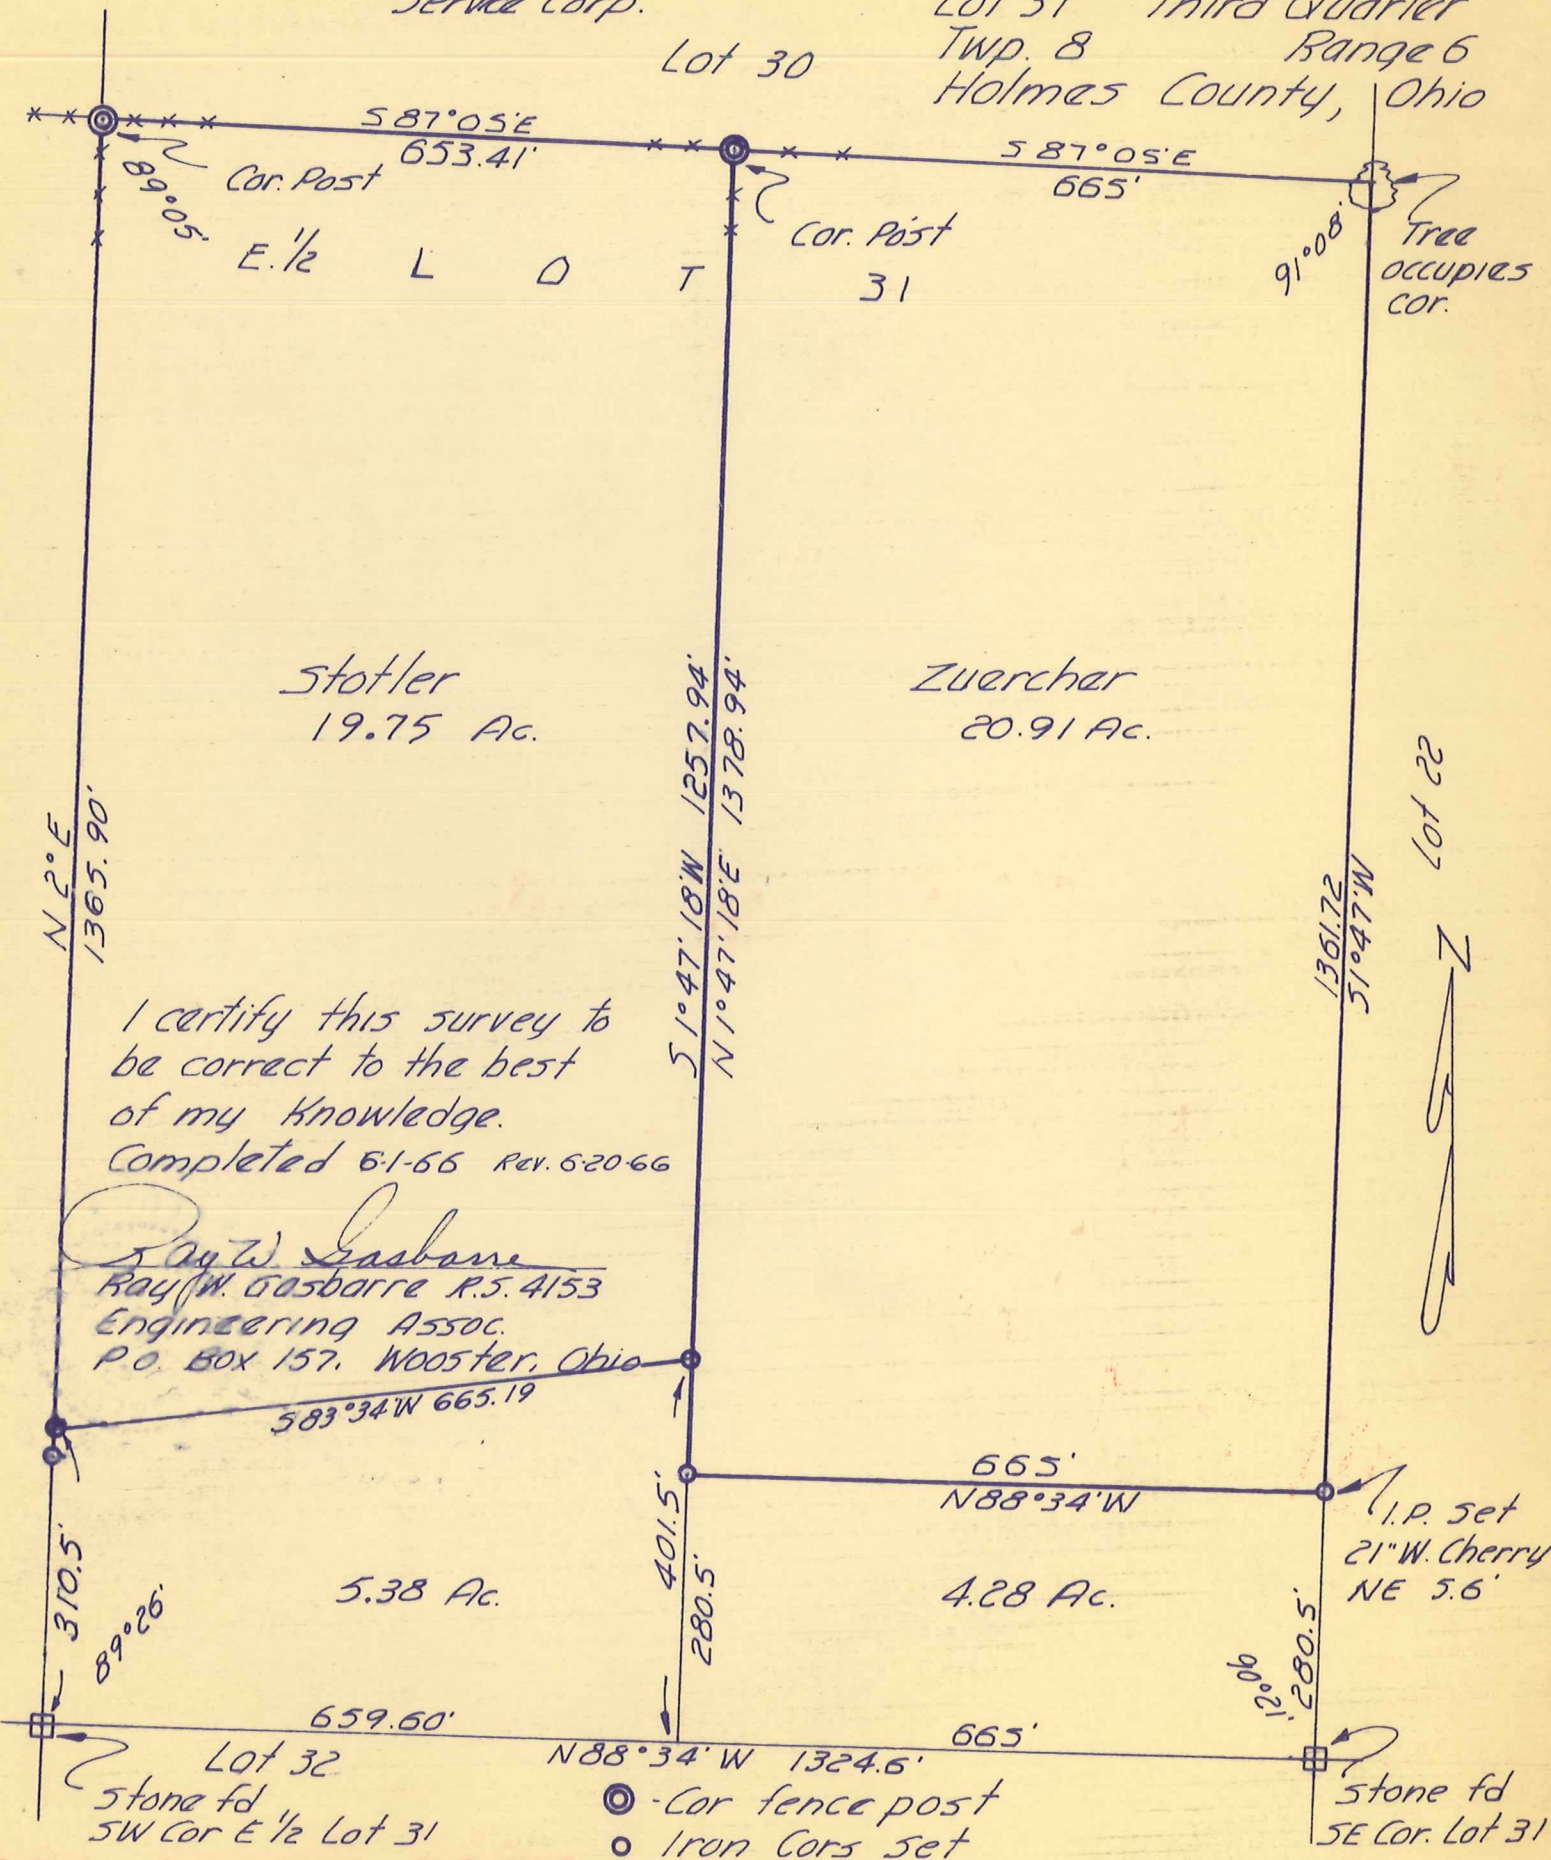 Service Corp.
Lot 31 Third Quarter
Twp. 8 Range 6
Holmes County, Ohio
Lot 30
S 87°05'E
653.41'
S 87°05'E
665'
Cor. Post
89°05'
Cor. Post
91°08'
Tree
occupies
cor.
E. 1/2 L O T 31
Stotler
19.75 Ac.
Zuercher
20.91 Ac.
N 2° E
1365.90'
S 1°47'18"W 1257.94'
N 1°47'18"E 1378.94'
1361.72
S1°47'W
Lot 22
N
I certify this survey to
be correct to the best
of my Knowledge.
Completed 6-1-66 Rev. 6-20-66
Ray W. Gasbarre
Ray W. Gasbarre R.S. 4153
Engineering Assoc.
P.O. Box 157, Wooster, Ohio
S 83°34'W 665.19
665'
N88°34'W
I.P. set
21" W. Cherry
NE 5.6'
310.5'
89°26'
5.38 Ac.
401.5'
280.5'
4.28 Ac.
90°21'
280.5'
659.60'
665'
N 88°34' W 1324.6'
Lot 32
Stone fd
SW Cor E 1/2 Lot 31
Stone fd
SE Cor. Lot 31
- Cor fence post
Iron Cors set